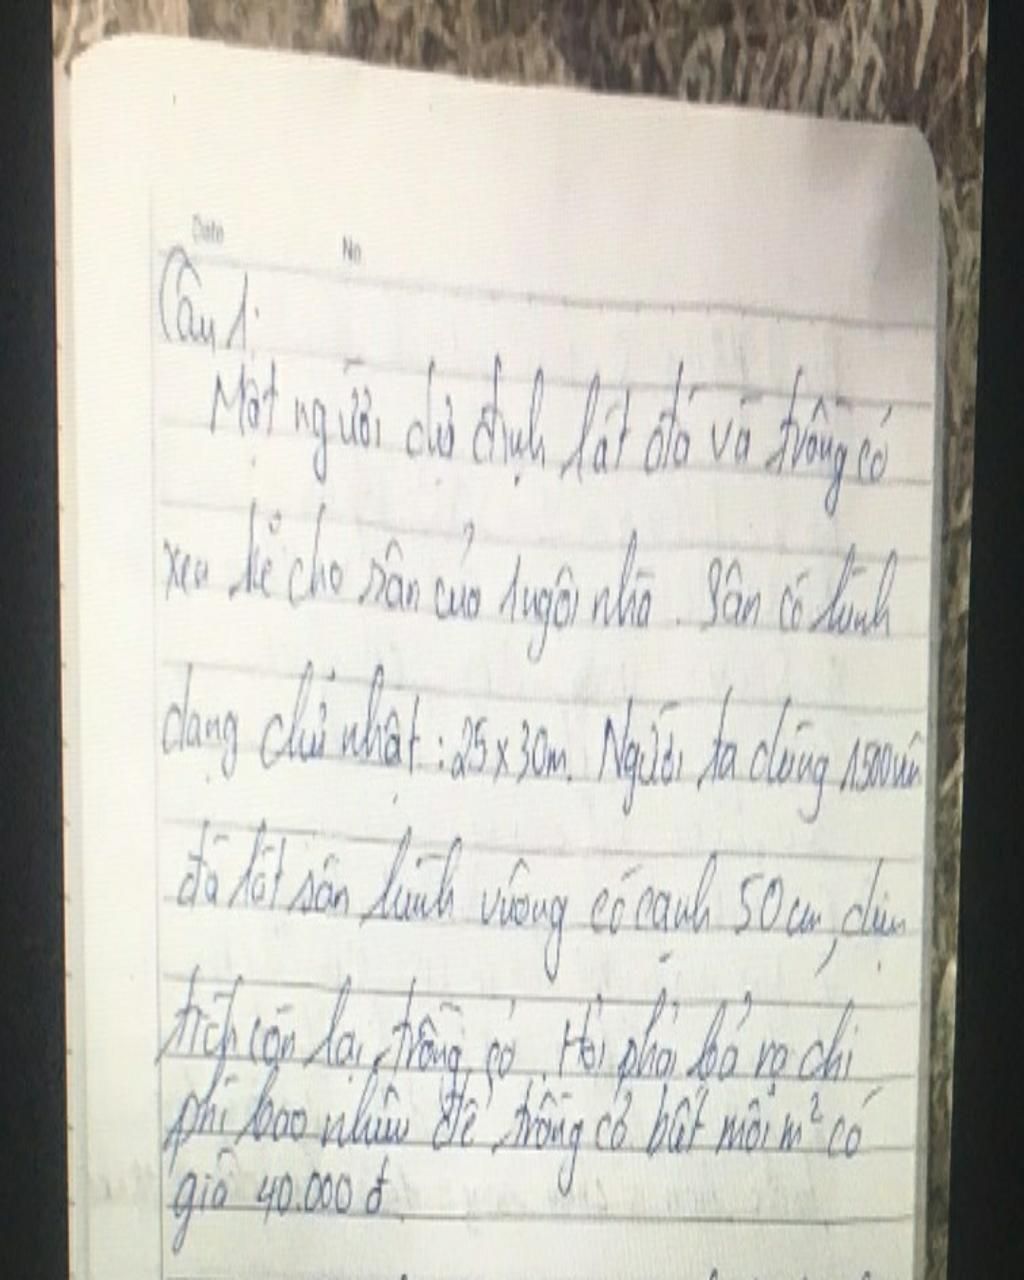 Date No
Câu 1:
Một người dự định lát đá và trồng cỏ
xen kẽ cho sân của 1 ngôi nhà. Sân có hình
dạng chữ nhật: 25x30m. Người ta dùng 1500 viên
đá lát sân hình vuông có cạnh 50 cm, diện
tích còn lại trồng cỏ. Hỏi phải bỏ ra chi
phí bao nhiêu để trồng cỏ biết mỗi m² cỏ
giá 40.000 đ